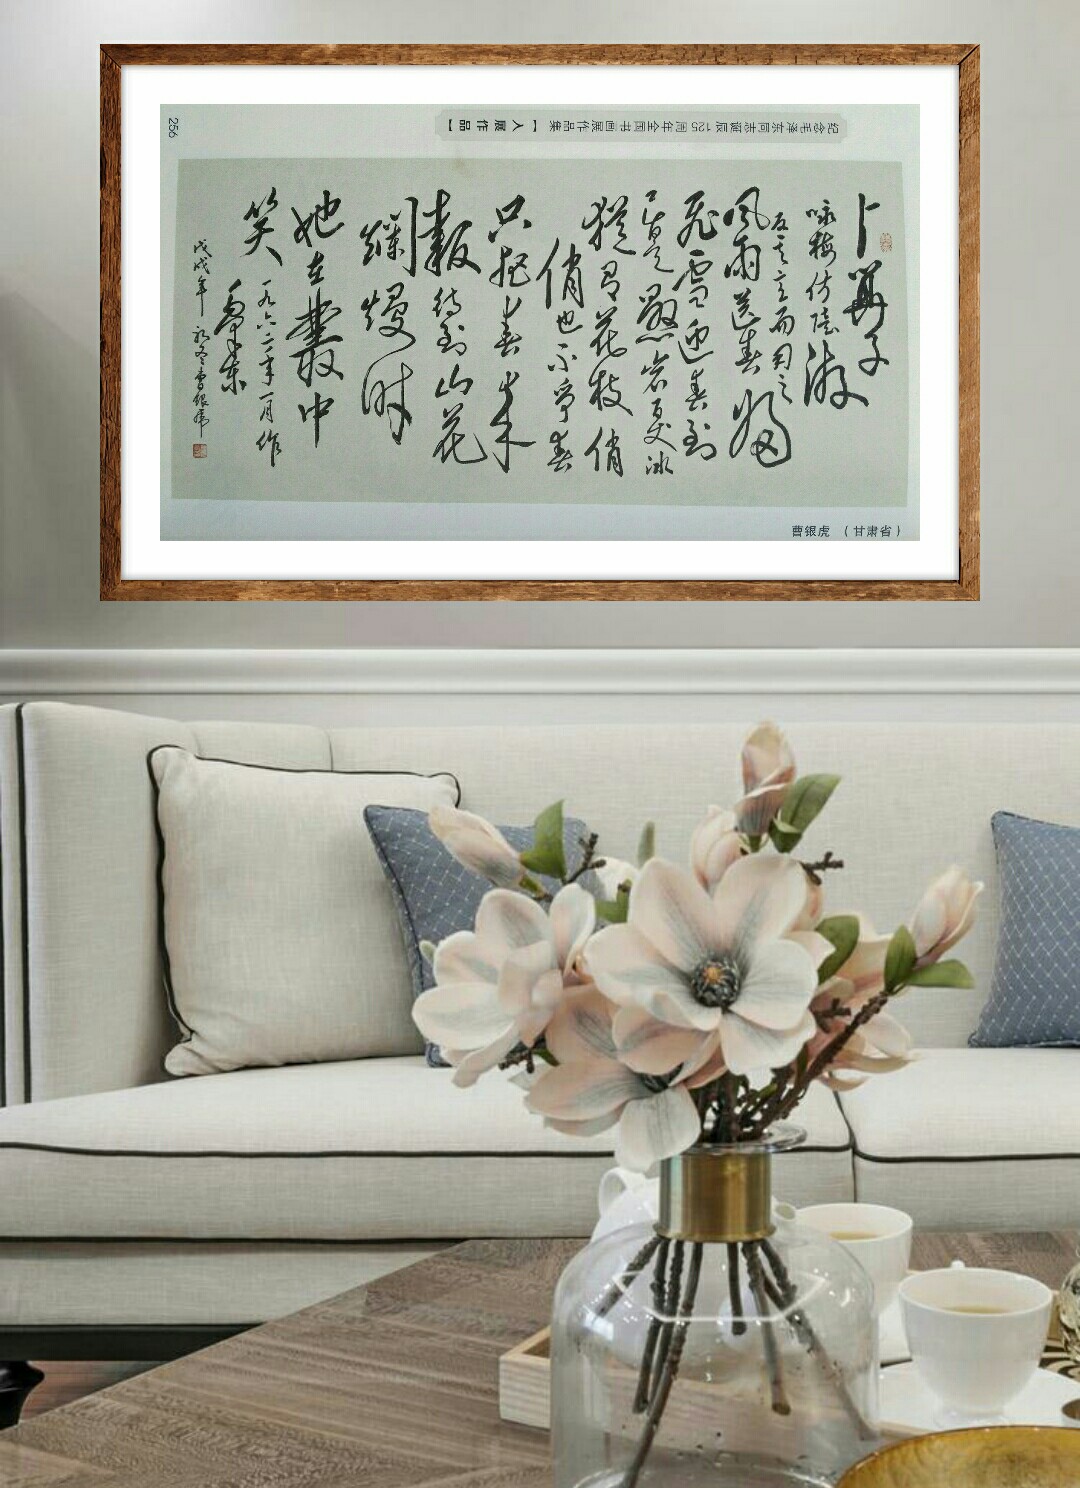 256
纪念毛泽东同志诞辰 125 周年全国书画展作品集【入展作品】
卜算子
咏梅仿陆游
反其意而用之
風雨送春归
飛雪迎春到
已是懸岩百丈冰
犹有花枝俏
俏也不争春
只把春来
報待到山花
爛熳时
她在叢中
笑
一九六二年一月作
泽东
戊戌年初冬曹银虎
曹银虎 （甘肃省）